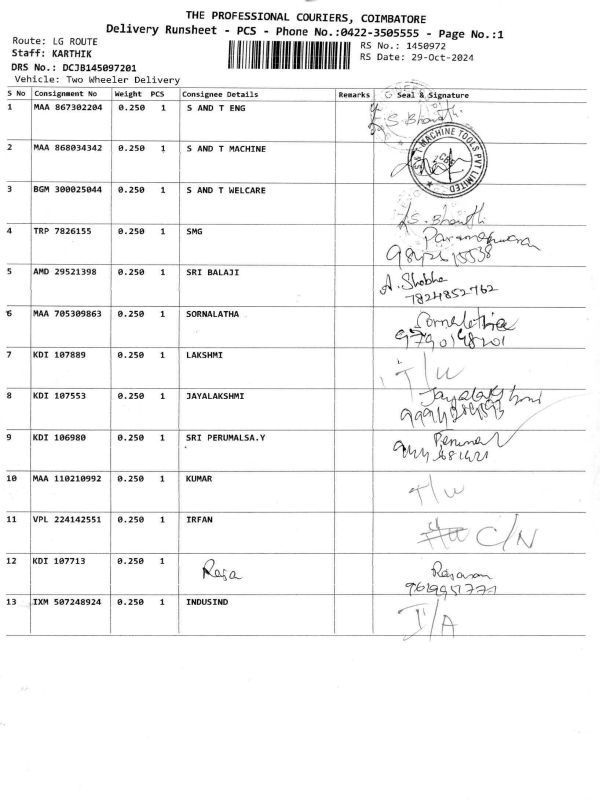 THE PROFESSIONAL COURIERS, COIMBATORE
Delivery Runsheet - PCS - Phone No.:0422-3505555 - Page No.:1
Route: LG ROUTE
RS No.: 1450972
Staff: KARTHIK
RS Date: 29-Oct-2024
DRS No.: DCJB145097201
Vehicle: Two Wheeler Delivery
S No Consignment No Weight PCS Consignee Details Remarks Seal & Signature
1 MAA 867302204 0.250 1 S AND T ENG S. Bharathi
2 MAA 868034342 0.250 1 S AND T MACHINE S & T MACHINE TOOLS PVT LIMITED CBE
3 BGM 300025044 0.250 1 S AND T WELCARE S. Bharathi
4 TRP 7826155 0.250 1 SMG Parameshwaran
5 AMD 29521398 0.250 1 SRI BALAJI A. Shobha
7824852762
6 MAA 705309863 0.250 1 SORNALATHA Sornalatha
7 KDI 107889 0.250 1 LAKSHMI T/W
8 KDI 107553 0.250 1 JAYALAKSHMI Jayalakshmi
9 KDI 106980 0.250 1 SRI PERUMALSA.Y Perumal
10 MAA 110210992 0.250 1 KUMAR T/W
11 VPL 224142551 0.250 1 IRFAN C/N
12 KDI 107713 0.250 1 Raja
13 IXM 507248924 0.250 1 INDUSIND I/A